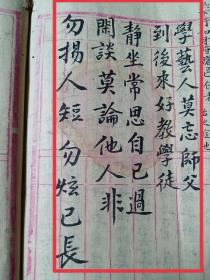 學藝人莫忘師父
到後來好教學徒
靜坐常思自己過
閑談莫論他人非
勿揚人短勿炫己長